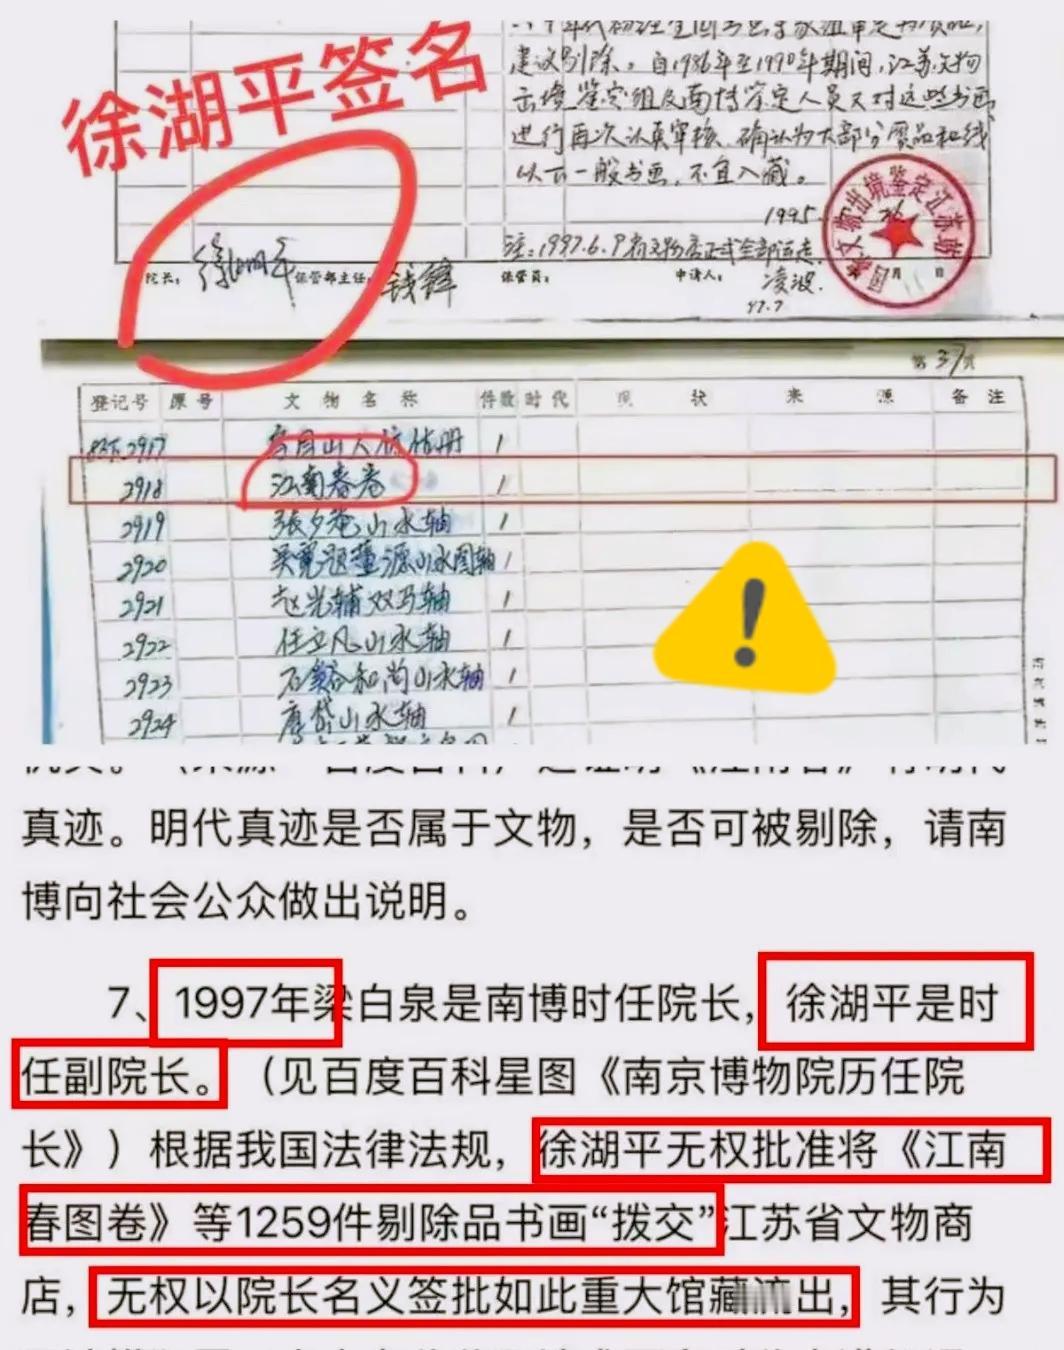 徐湖平签名
建议剔除。自1986年至1990年期间,江苏文物
出境鉴定组及南博鉴定人员又对这些书画
进行再次认真审核、确认为大部分赝品和线
以下一般书画,不宜入藏。
1995
注:1997.6.9 全部运走
院长: 徐湖平 保管部主任: 钱锋 保管员: 申请人: 凌波.
97.7
文物出境鉴定江苏
月 日
第37页
登记号 原号 文物名称 件数 时代 现状 来源 备注
2917 山人 册 1
2918 江南春卷 1
2919 张夕庵山水轴 1
2920 吴宽题董源山水图轴 1
2921 赵光辅双马轴 1
2922 任立凡山水轴 1
2923 石溪和尚山水轴 1
2924 唐岱山水轴 1
真迹。明代真迹是否属于文物，是否可被剔除，请南
博向社会公众做出说明。
7、1997年梁白泉是南博时任院长，徐湖平是时
任副院长。（见百度百科星图《南京博物院历任院
长》）根据我国法律法规，徐湖平无权批准将《江南
春图卷》等1259件剔除品书画“拨交”江苏省文物商
店，无权以院长名义签批如此重大馆藏流出，其行为